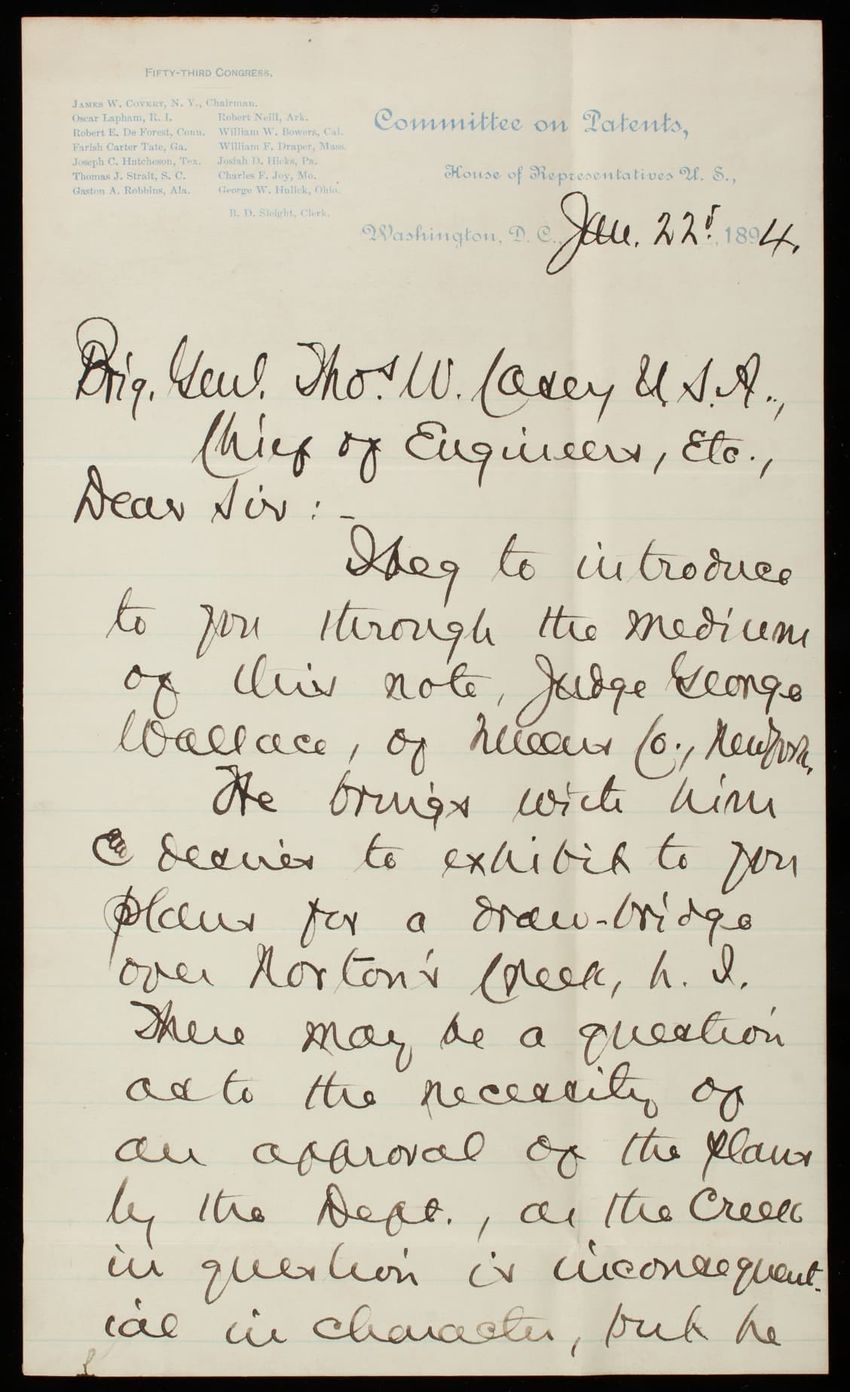 FIFTY-THIRD CONGRESS.
JAMES W. COVERT, N. Y., Chairman.
Oscar Lapham, R. I. Robert Neill, Ark.
Robert E. De Forest, Conn. William W. Bowers, Cal.
Farish Carter Tate, Ga. William F. Draper, Mass.
Joseph C. Hutcheson, Tex. Josiah D. Hicks, Pa.
Thomas J. Strait, S. C. Charles F. Joy, Mo.
Gaston A. Robbins, Ala. George W. Hulick, Ohio.
B. D. Sleight, Clerk.
Committee on Patents,
House of Representatives U. S.,
Washington, D. C., Jan. 22d, 1894.
Brig. Genl. Thos. W. Casey U. S. A.,
Chief of Engineers, Etc.,
Dear Sir:-
I beg to introduce
to you through the medium
of this note, Judge George
Wallace, of Queens Co., New York.
He brings with him
& desires to exhibit to you
plans for a draw-bridge
over Norton's Creek, L. I.
There may be a question
as to the necessity of
an approval of the plans
by the Dept., as the Creek
in question is inconsequent-
ial in character, but he